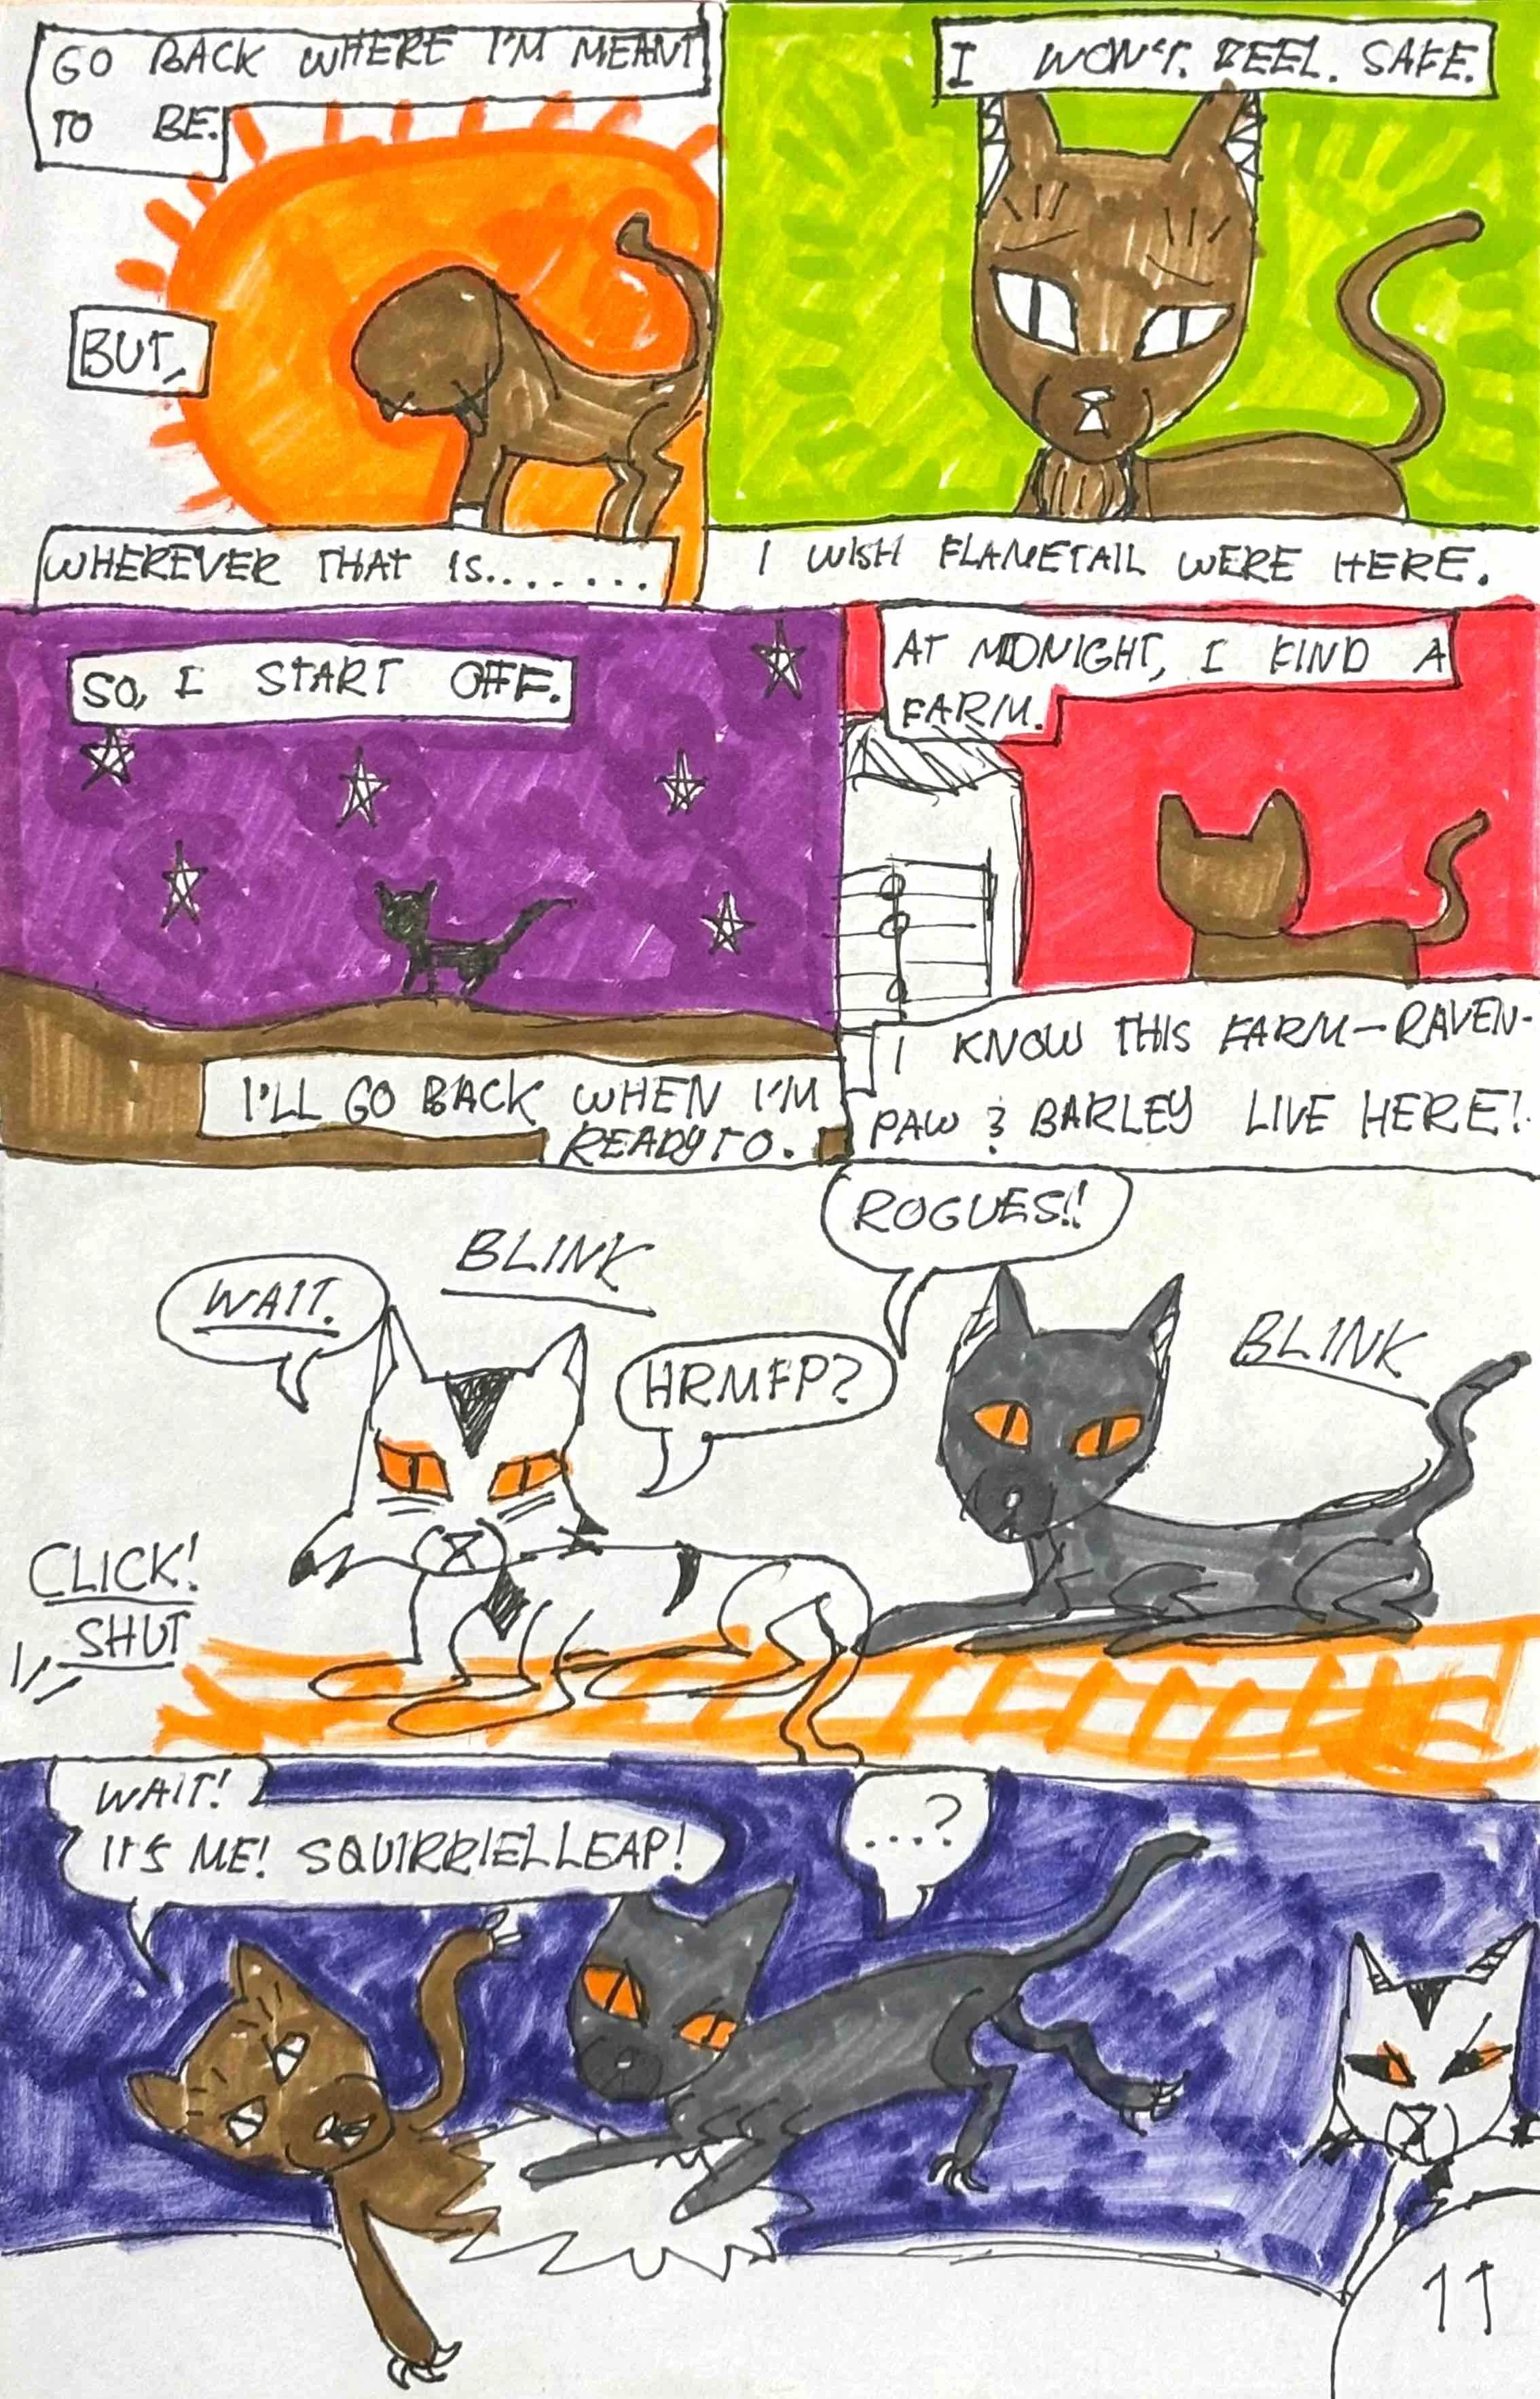 GO BACK WHERE I'M MEANT
TO BE.
BUT,
WHEREVER THAT IS.......
I WON'T. FEEL. SAFE.
I WISH FLAMETAIL WERE HERE.
SO, I START OFF.
I'LL GO BACK WHEN I'M
READY TO.
AT MIDNIGHT, I FIND A
FARM.
I KNOW THIS FARM-RAVEN-
PAW & BARLEY LIVE HERE!
WAIT.
BLINK
HRMFP?
ROGUES!!
BLINK
CLICK!
SHUT
WAIT!
IT'S ME! SQUIRRIELLEAP!
....?
11